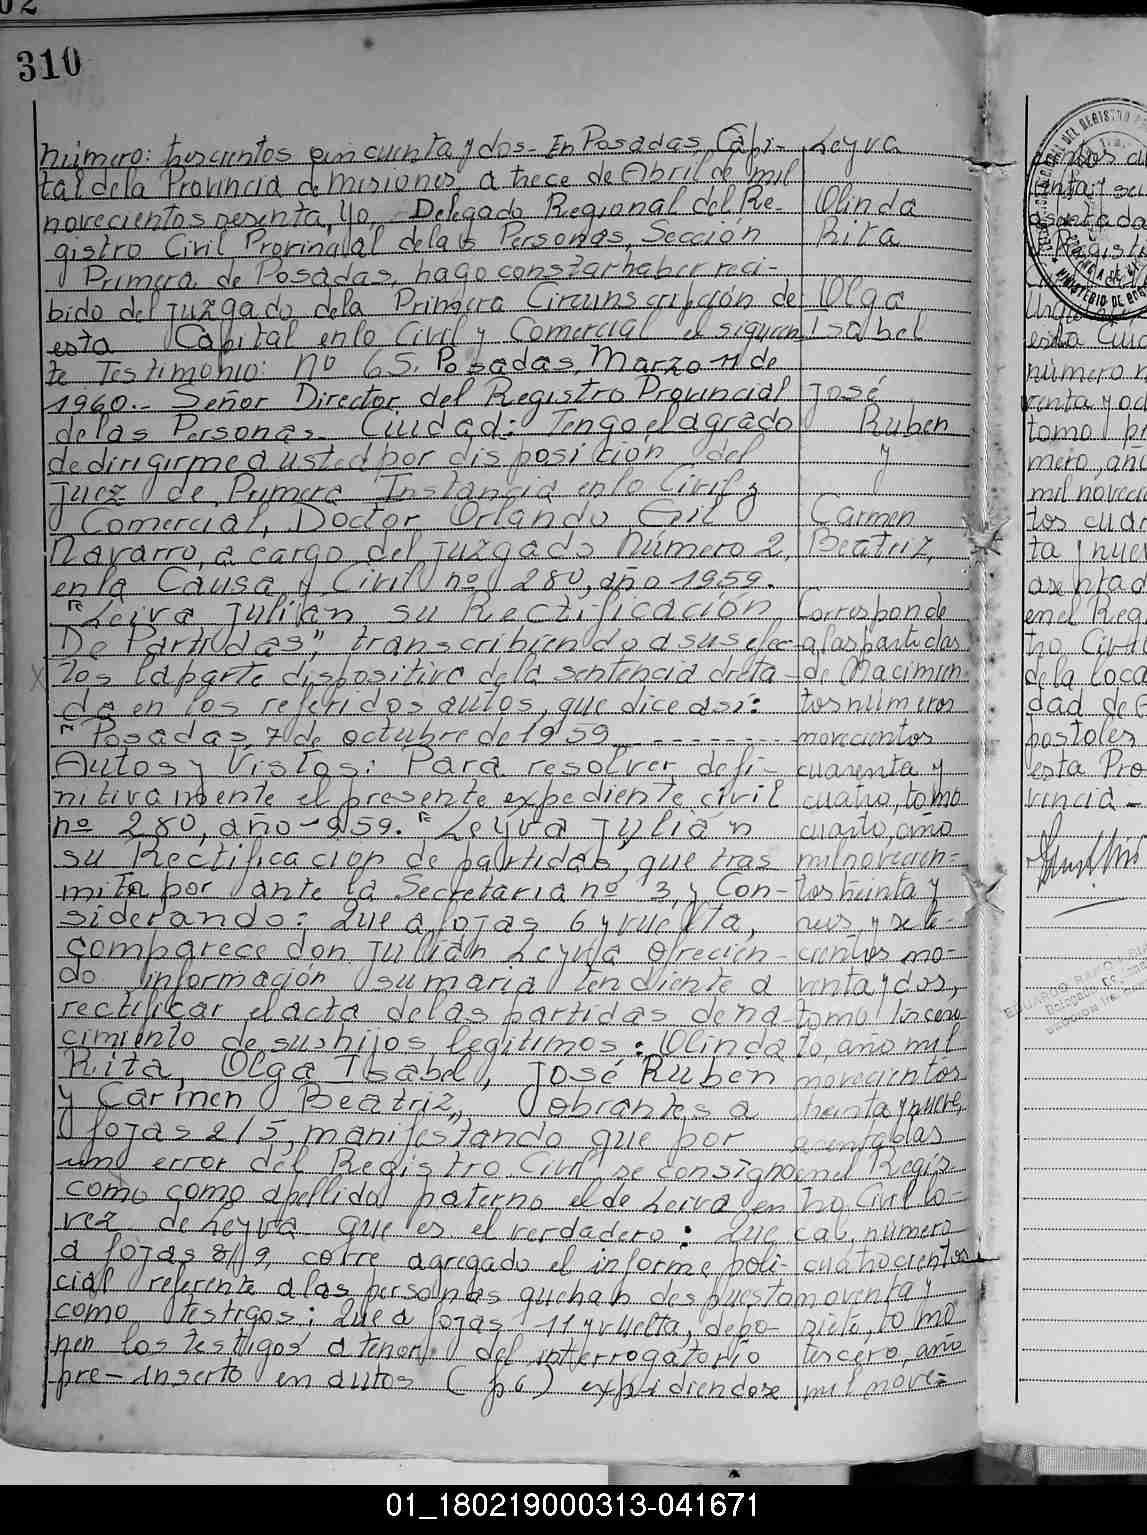 02
310
número: trescientos cincuenta y dos - En Posadas, Capi-
tal de la Provincia de Misiones a trece de Abril de mil
novecientos sesenta, Yo, Delegado Regional del Re-
gistro Civil Provincial de las Personas, Sección
Primera de Posadas, hago constar haber reci-
bido del Juzgado de la Primera Circunscripción de
esta Capital en lo Civil y Comercial el siguien
te Testimonio: nº 65. Posadas, Marzo 11 de
1960.- Señor Director del Registro Provincial
de las Personas. Ciudad: Tengo el agrado
de dirigirme a usted por disposición del
Juez de Primera Instancia en lo Civil y
Comercial, Doctor Orlando Gil
Navarro, a cargo del Juzgado Número 2,
en la Causa Civil nº 280, año 1959.
"Leiva Julian su Rectificación
De Partidas", transcribiendo a sus efec-
tos la parte dispositiva de la sentencia dicta-
da en los referidos autos, que dice así:
"Posadas, 7 de octubre de 1959 --------
Autos y Vistos: Para resolver defi-
nitivamente el presente expediente civil
nº 280, año 1959. "Leyva Julián
su Rectificación de partidas, que tras
mita por ante la Secretaria nº 3, y Con-
siderando: Que a fojas 6 y vuelta,
comparece don Julián Leyva ofrecien-
do información sumaria tendiente a
rectificar el acta de las partidas de na-
cimiento de sus hijos legitimos: Olinda
Rita, Olga Isabel, José Ruben
y Carmen Beatriz, obrantes a
fojas 2/5, manifestando que por
un error del Registro Civil se consigno
como como apellido paterno el de Leiva en
vez de Leyva que es el verdadero: Que
a fojas 8/9, corre agregado el informe poli-
cial referente a las personas que han depuesto
como testigos; Que a fojas 11 y vuelta, depo-
nen los testigos a tenor del interrogatorio
pre-inserto en autos (f 6) expidiendose
Leyva
Olinda
Rita
Olga
Isabel
José
Ruben
y
Carmen
Beatriz,
Corresponde
a las partidas
de Nacimien-
tos números
novecientos
cuarenta y
cuatro, tomo
cuarto, año
mil novecien-
tos treinta y
seis, y sete-
cientos no-
venta y dos,
tomo tercero
to, año mil
novecientos
treinta y nueve,
asentadas
en el Regis-
tro Civil lo-
cal, número
cuatrocientos
noventa y
siete, tomo
tercero, año
mil nove-
cientos cua
renta y
asentada
Registr
esta Ciud
número n
renta y oc
tomo pr
mero, año
mil novecie
tos cuar
ta y nuev
asentad
en el Reg
tro Civil
de la loca
dad de A
postoles
esta Pro
vincia-
01_180219000313-041671